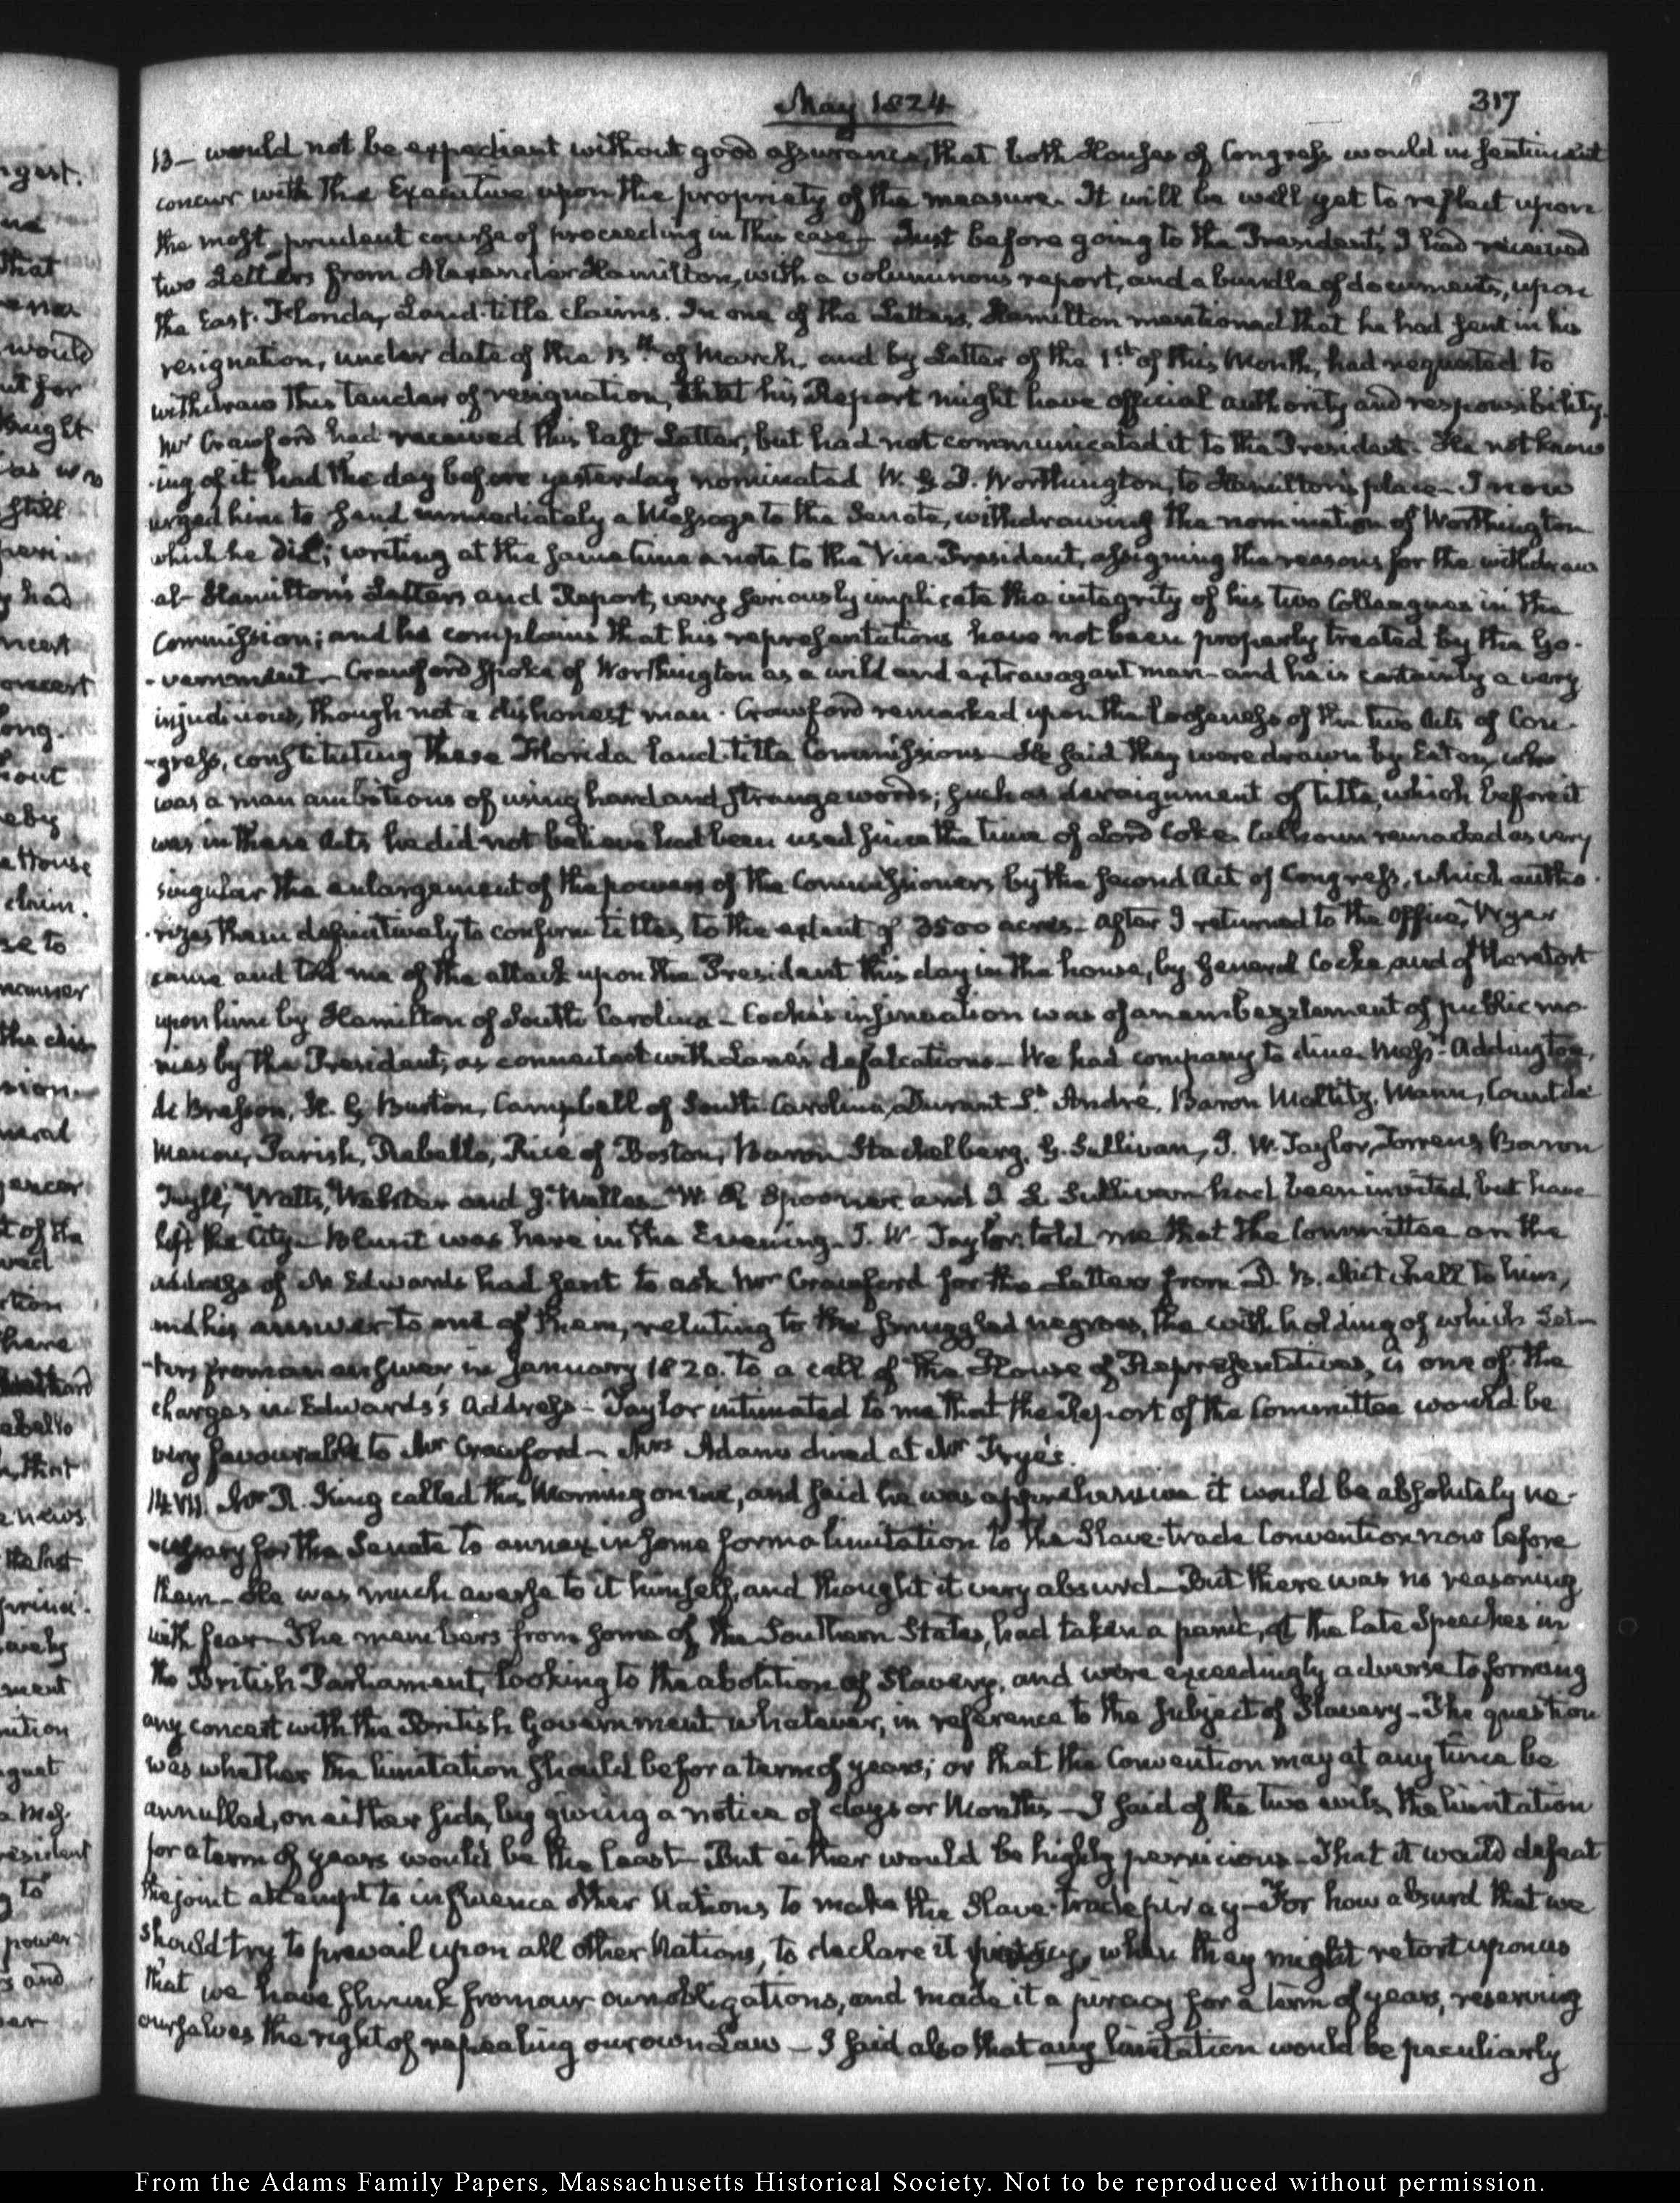 May 1824
317
13 — would not be expedient without good assurance, that both Houses of Congress would in sentiment
concur with the Executive upon the propriety of the measure. It will be well yet to reflect upon
the most prudent course of proceeding in this case — Just before going to the President's, I had received
two Letters from Alexander Hamilton, with a voluminous report, and a bundle of documents, upon
the East-Florida, Land-title claims. In one of the Letters, Hamilton mentioned that he had sent in his
resignation, under date of the 13th of March, and by Letter of the 1st of this Month, had requested to
withdraw this tender of resignation, that his Report might have official authority and responsibility.
Mr Crawford had received this last Letter, but had not communicated it to the President. He not know
-ing of it had the day before yesterday nominated W. G. D. Worthington, to Hamilton's place — I now
urged him to send immediately a Message to the Senate, withdrawing the nomination of Worthington
which he did; writing at the same time a note to the Vice-President, assigning the reasons for the withdraw
al — Hamilton's Letters and Report, very seriously implicate the integrity of his two Colleagues in the
Commission; and he complains that his representations have not been properly treated by the Go-
-vernment — Crawford spoke of Worthington as a wild and extravagant man — and he is certainly a very
injudicious, though not a dishonest man. Crawford remarked upon the looseness of the two Acts of Con-
-gress, constituting these Florida land-title Commissions — He said they were drawn by Eaton, who
was a man ambitious of using hard and strange words; such as deraignment of title, which before it
was in these Acts he did not believe had been used since the time of Lord Coke. Calhoun remarked as very
singular the enlargement of the powers of the Commissioners by the second Act of Congress, which autho-
-rizes them definitively to confirm titles, to the extent of 3500 acres — After I returned to the Office, Wyer
came and told me of the attack upon the President this day in the house, by General Cocke, and of the retort
upon him by Hamilton of South Carolina — Cocke's insinuation was of an embezzlement of public mo-
nies by the President, as connected with Lane's defalcations — We had company to dine. Messrs Addington,
de Bresson, H. G. Burton, Campbell of South-Carolina, Durant St. André, Baron Maltitz, Mann, Count de
Menou, Parish, Rebello, Rice of Boston, Baron Stackelberg, G. Sullivan, J. W. Taylor, Torrens, Baron
Tuyll, Watts, Webster and J. Welles — W. R. Spooner and J. L. Sullivan had been invited, but have
left the City — Blunt was here in the Evening — J. W. Taylor told me that the Committee on the
address of N. Edwards had sent to ask Mr Crawford for the Letters from D. B. Mitchell to him,
and his answer to one of them, relating to the smuggled negroes, the withholding of which Let-
-ters from an answer in January 1820. to a call of the House of Representatives, is one of the
charges in Edwards's Address — Taylor intimated to me that the Report of the Committee would be
very favourable to Mr Crawford — Mrs Adams dined at Mr Frye's.
14. VII. Mr R. King called this Morning on me, and said he was apprehensive it would be absolutely ne-
-cessary for the Senate to annex in some form a limitation to the Slave-trade Convention now before
them — He was much averse to it himself, and thought it very absurd — But there was no reasoning
with fear — The members from some of the Southern States, had taken a panic, at the late Speeches in
the British Parliament, looking to the abolition of Slavery, and were exceedingly adverse to forming
any concert with the British Government whatever, in reference to the subject of Slavery — The question
was whether the limitation should be for a term of years; or that the Convention may at any time be
annulled, on either side, by giving a notice of days or Months — I said of the two evils, the limitation
for a term of years would be the least — But either would be highly pernicious — That it would defeat
the joint attempt to influence other Nations to make the Slave-trade piracy — For how absurd that we
should try to prevail upon all other Nations, to declare it piracy, when they might retort upon us
that we have shrunk from our own obligations, and made it a piracy for a term of years, reserving
ourselves the right of repealing our own Law — I said also that any limitation would be peculiarly
From the Adams Family Papers, Massachusetts Historical Society. Not to be reproduced without permission.